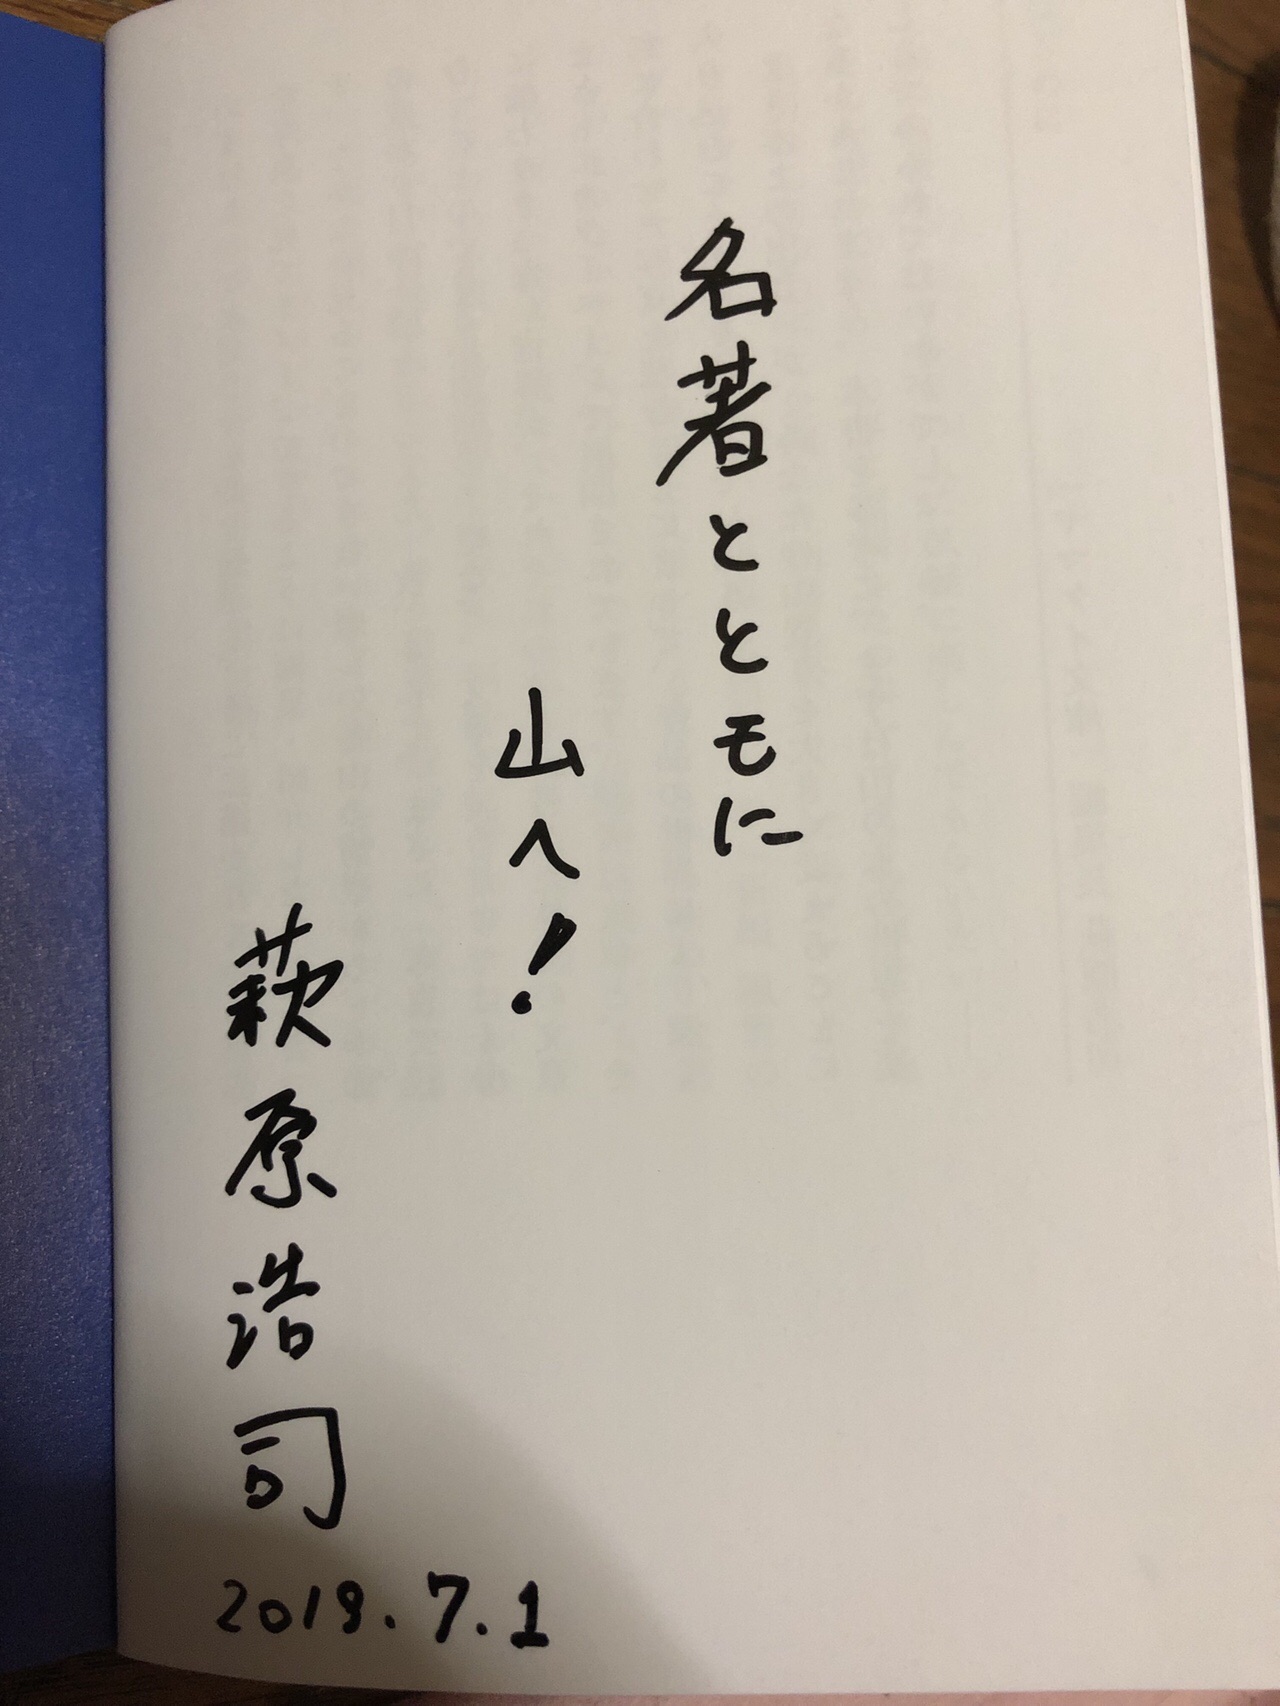 名著とともに
山へ!
萩原浩司
2019.7.1